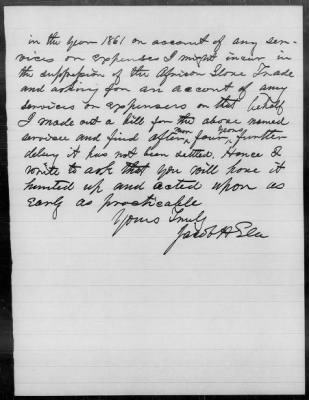 in the year 1861 on account of any ser-
vices or expenses I might incur in
the suppression of the African Slave Trade
and asking for an account of any
services or expenses on that behalf
I made out a bill for the above named
service and find after four years further
delay it has not been settled, Hence I
write to ask that you will have it
hunted up and acted upon as
early as practicable
Yours Truly
Jacob A